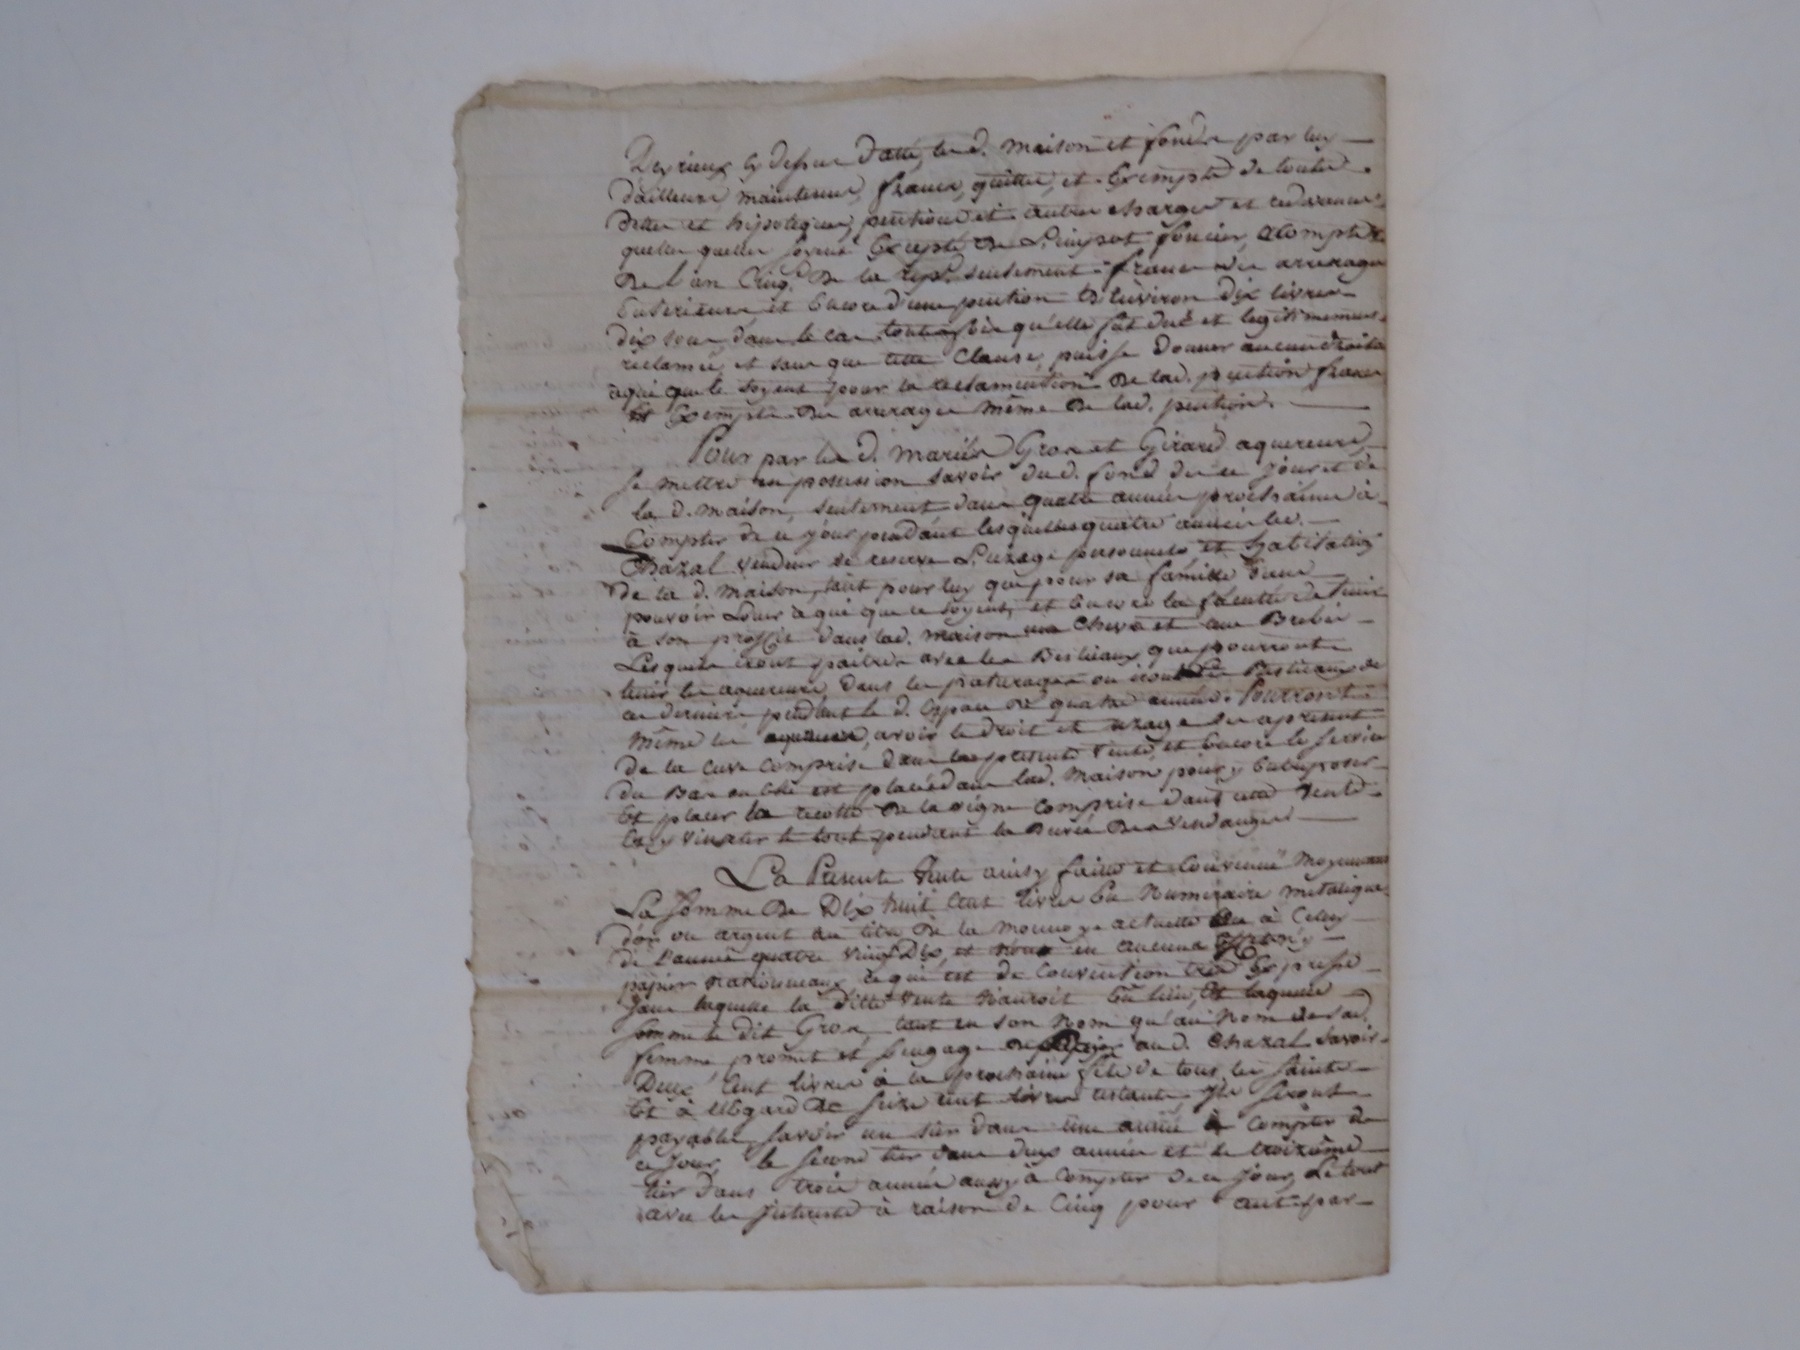 Deyrieux cy dessus datté, les d. maison et fonds par luy
d'ailleurs maintenus, francs, quittes, et Exempts de toutes
dettes et hipoteques, pentions et autres charges et redevances
quelles quelles soyent Excepté de L'impot foncier, acompter
de l'an Cinq de la rep.e seulement francs des arrerages
enterieurs, et Encore d'une pention d'Environ dix livres
dix sous, dans le cas toutesfois qu'elle fut due et legitimement
réclamée, et sans que cette Clause, puisse donner aucuns droits
a qui que ce soyent pour la reclamation de lad. pention francs
Et Exempts des arrerages même de lad. pention.
Pour par les d. mariés Gros et Girard aquereurs,
se mettre en possession savoir du d. fond dès ce jour et de
la d. maison, seulement dans quatre années prochaines à
Compter de ce jour pendant lesquelles quatre années led.
Chazal vendeur se reserve L'uzage personnels et habitation
de la d. maison, tant pour luy que pour sa famille sans
pouvoir Louer à qui que ce soyent, et Encore la faculté de tenir
à son proffit dans lad. maison une Chevre et une Brebis
Lesquels iront paitre avec les Bestiaux que pourront
tenir les aquereurs, dans les paturages ou iront les Bestiaux de
ces derniers pendant le d. espace de quatre années. Pourront
même les aquereurs, avoir le droit et uzage dès apresent
de la Cuve comprise dans la presente vente, et Encore le service
du Bas ou elle est placée dans lad. maison pour y Entreposer
Et placer la recolte de la vigne comprise dans cette vente
Et y vinater le tout pendant la durée des vendanges
La Presente vente ainsy faitte et Convenue moyennant
La somme de Dix huit Cent livres En Numeraire metalique
d'or ou argent au titre de la monnoye actuelle ou à Celuy
de l'année quatre vingt Dix, et non en aucuns
papier nationneaux ce qui est de Convention très Expresse
sans laquelle la ditte vente n'auroit Eu lieu, Et laquelle
somme le dit Gros, tant en son Nom qu'au Nom de sad.
femme promet et s'engage de payer au d. Chazal savoir
Deux Cent livres à la prochaine fete de tous les saints
Et à l'Egard de seize cent livres restants Ils seront
payables, savoir un tiers dans une année à Compter de
ce jour, le second tiers dans deux années et le troizième
tiers dans trois années aussy à Compter de ce jour, Le tout
avec les Interets à raison de Cinq pour cent par